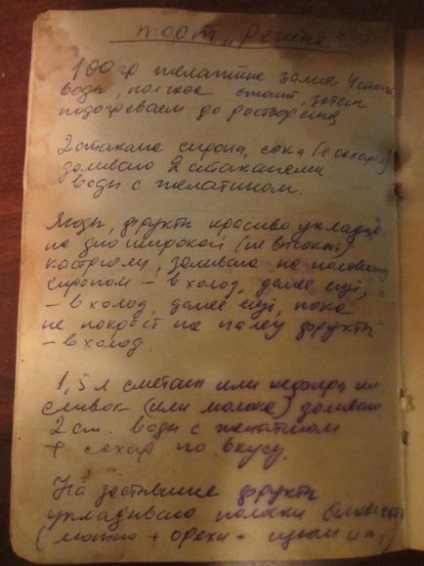 торт „Регина"
100 гр желатина залив 4 стак
воды, полчаса стоит, затем
подогреваем до растворения
2 стакана сиропа, сока (и сахара)
заливаю 2 стаканами
воды с желатином.
Ягоды, фрукты красиво укладыв
на дно широкой (не высокой)
кастрюли, заливаю на половину
сиропом – в холод, далее ещё,
– в холод, далее ещё, пока
не покроет на палец фрукты
– в холод.
1,5 л сметаны или кефира или
сливок (или молока) заливаю
2 ст. воды с желатином
+ сахар по вкусу.
На застывшие фрукты
укладываю полоски бисквита
(можно + орехи + изюм и